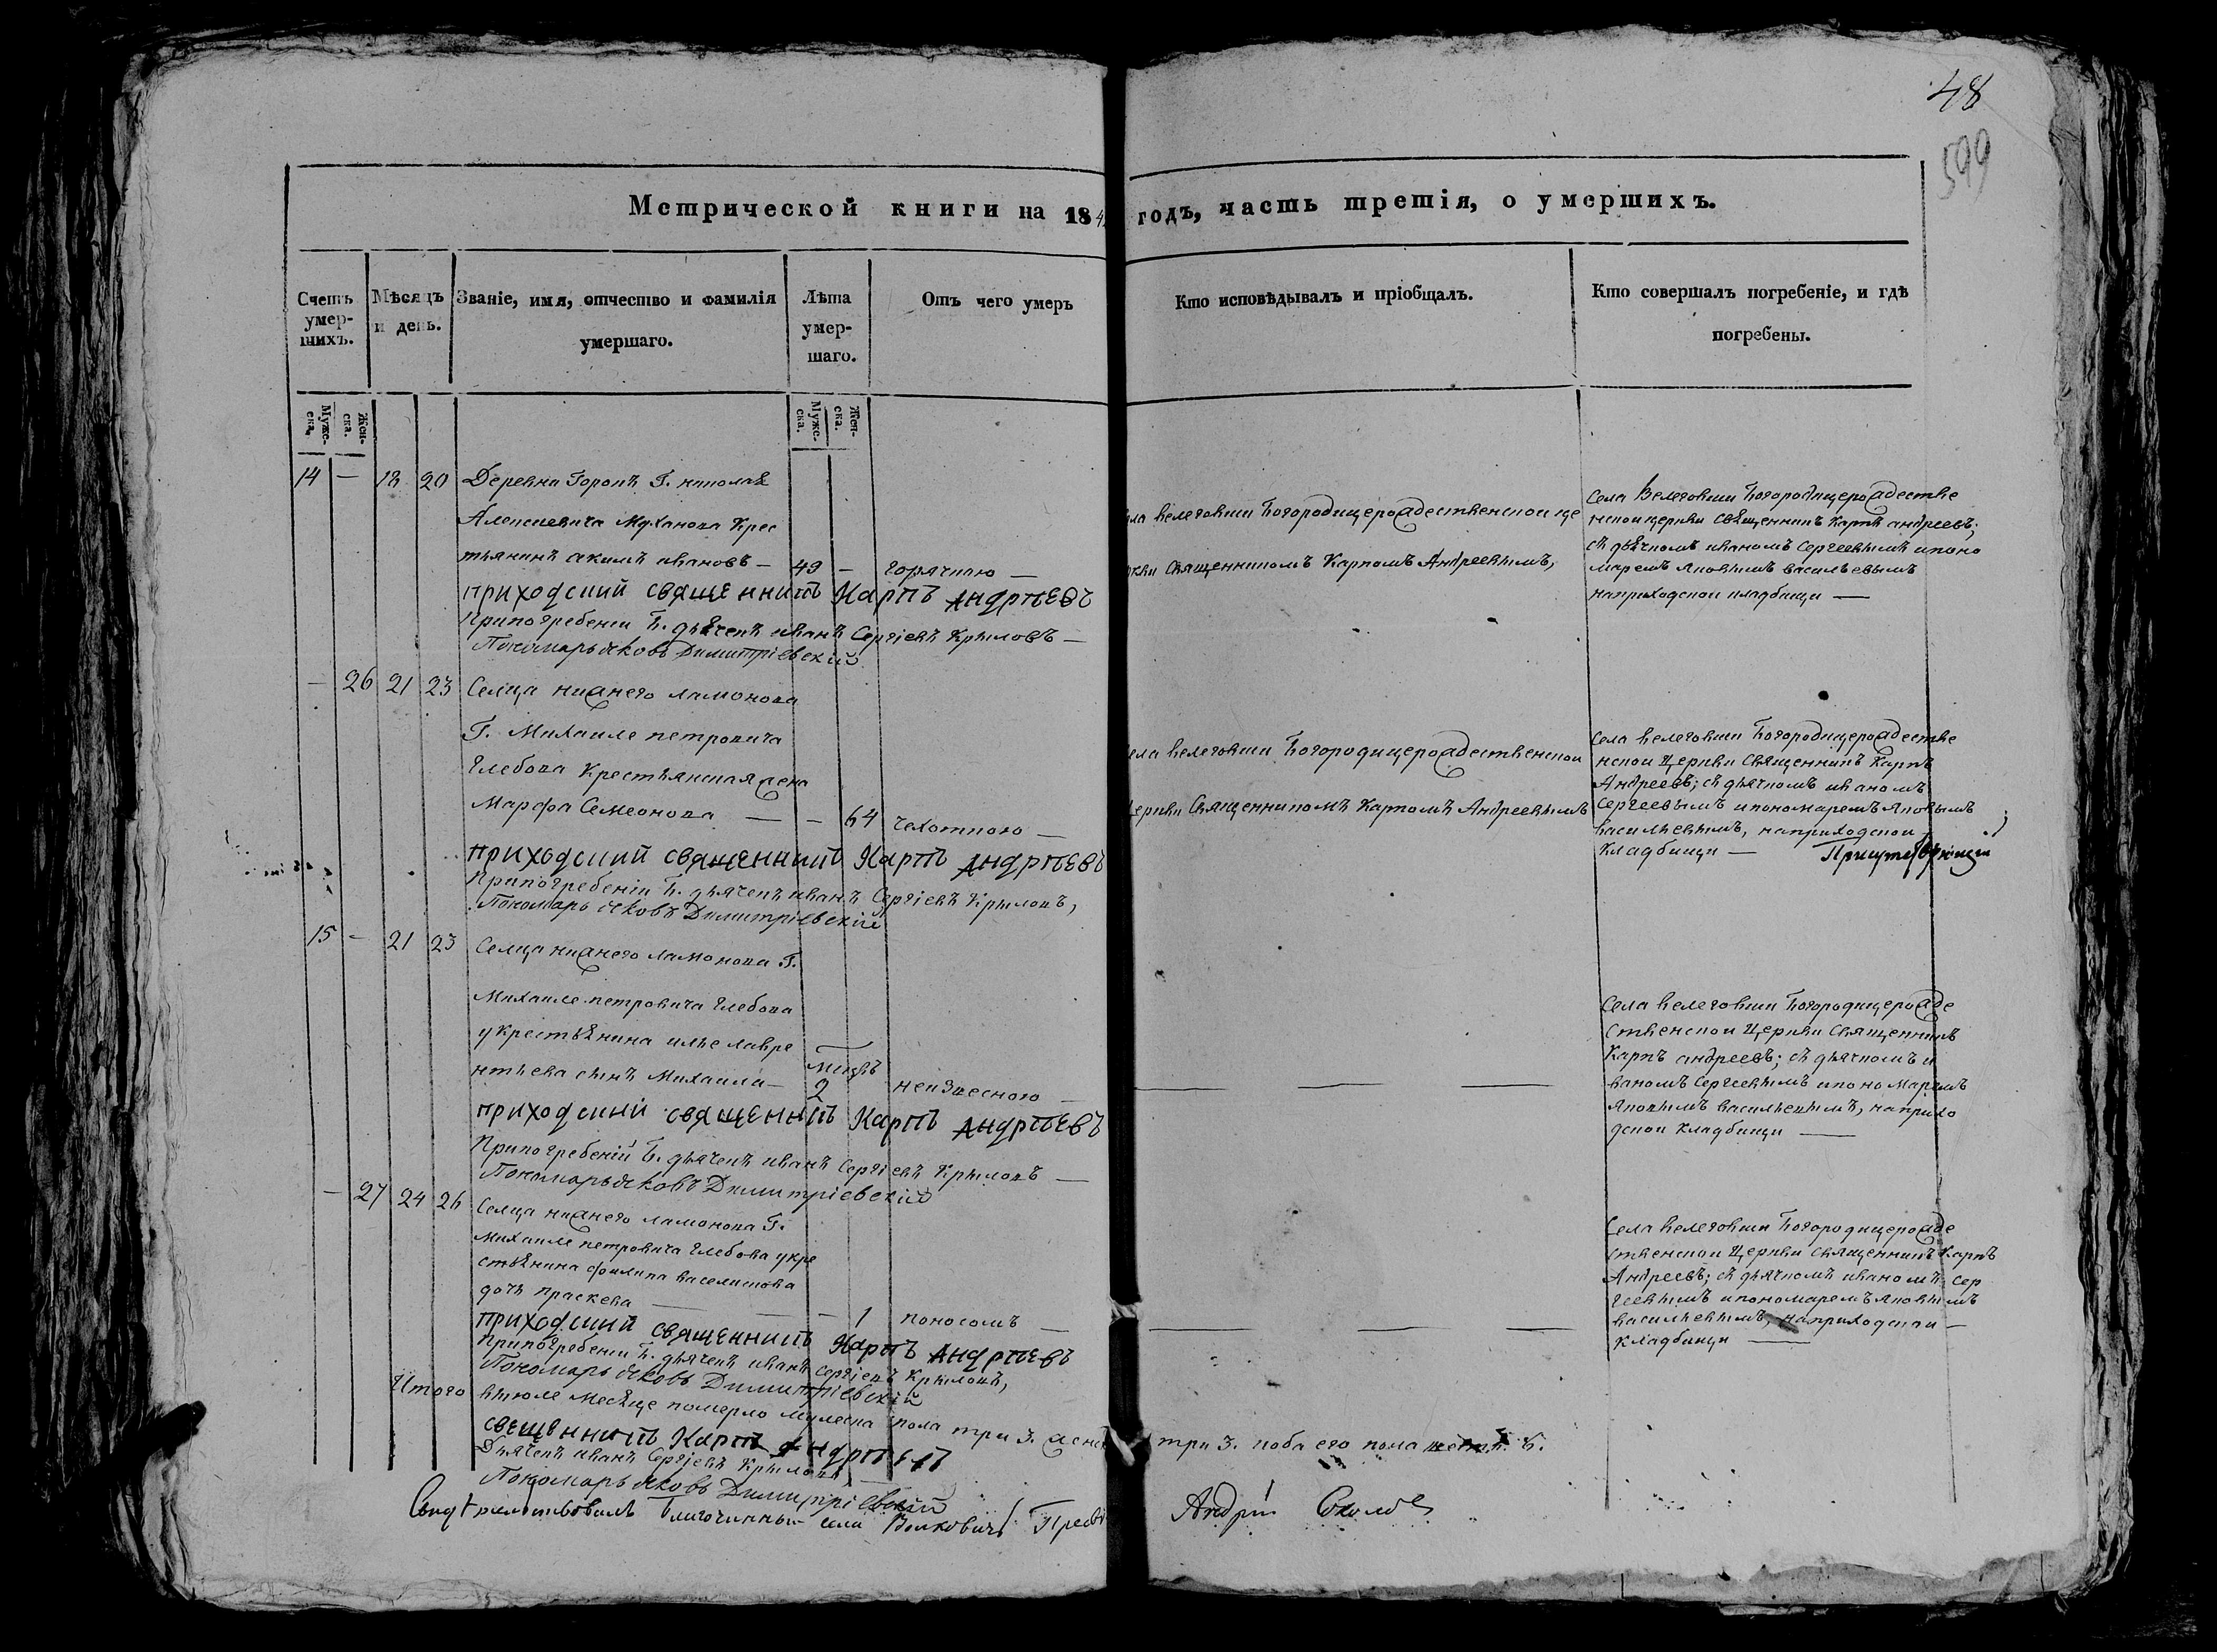 48
599
Метрической книги на 184 годъ, часть третія, о умершихъ.
Счетъ умер-шихъ.
Мѣсяцъ и день.
Званіе, имя, отчество и фамилія умершаго.
Лѣта умер-шаго.
Отъ чего умеръ
Кто исповѣдывалъ и пріобщалъ.
Кто совершалъ погребеніе, и гдѣ погребены.
Мужс-ка.
Жен-ска.
Мужс-ка.
Жен-ска.
14 — 18 20 Деревни Горокъ Г. николаѣ
Алексиевича Муханова Крес
тьянинъ акимъ ивановъ — 49 — горячкою —
приходский священникъ Карпъ Андрѣевъ
Припогребении Б. дьячекъ иванъ Сергіевъ Крыловъ —
Пономарь яковъ Димитріевскій
села велеговши Богородицерождественскои це
ркви Священникомъ Карпомъ Андреевымъ,
Села Велеговши Богородицерождестве
нскои церкви священникъ карпъ андреевъ;
съ дьячкомъ иваномъ Сергеевымъ ипоно
маремъ яковымъ васильевымъ
наприходскои кладбищи —
— 26 21 23 Селца нижнего ламонова
Г. Михаиле петровича
Глебова Крестьянская жена
Марфа Семеонова — — 64 чехоткою —
приходский священникъ Карпъ Андрѣевъ
Припогребеніи Б. дьячекъ иванъ Сергіевъ Крыловъ,
Пономарь яковъ Димитріевскій
села велеговши Богородицерождественскои
Церкви Священникомъ Карпомъ Андреевымъ
Села велеговши Богородицерождестве
нскои Церкви Священникъ Карпъ
Андреевъ; съ дьячкомъ иваномъ
Сергеевымъ ипономаремъ яковымъ
васильевымъ, наприходскои
кладбищи —
15 — 21 23 Селца нижнего ламонова Г.
Михаиле петровича Глебова
укрестьѣнина илье лавре
нтьева сынъ Михаила — 2 неизвесною —
приходский священникъ Карпъ Андрѣевъ
Припогребеній Б. дьячекъ иванъ Сергіевъ Крыловъ —
Пономарь яковъ Димитріевскій
Села велеговши Богородицерожде
ственскои Церкви Священникъ
Карпъ андреевъ; съ дьячкомъ и
ваномъ Сергеевымъ ипономаремъ
яковымъ васильевымъ, наприхо
дскои кладбищи —
— 27 24 26 Селца нижнего ламонова Г.
Михаиле петровича Глебова укре
стьѣнина филипа
дочь праскева — — — 1 поносомъ —
приходский священникъ Карпъ Андрѣевъ
Припогребении Б. дьячекъ иванъ Сергіевъ Крыловъ,
Пономарь яковъ Димитріевскій
Села велеговши Богородицерожде
ственскои Церкви священникъ Карпъ
Андреевъ; съ дьячкомъ иваномъ Сер
геевымъ ипономаремъ яковымъ
васильевымъ, наприходскои —
кладбищи —
Итого вьиюле месѣце померло мужеска пола три 3. женс три 3. поба его пола
свещенникъ Карпъ Андрѣевъ
Дьячекъ иванъ Сергіевъ Крыловъ
Пономарь яковъ Димитріевскій
Свидѣтельствовалъ Благочинный села Волковичъ Андрій Соколов